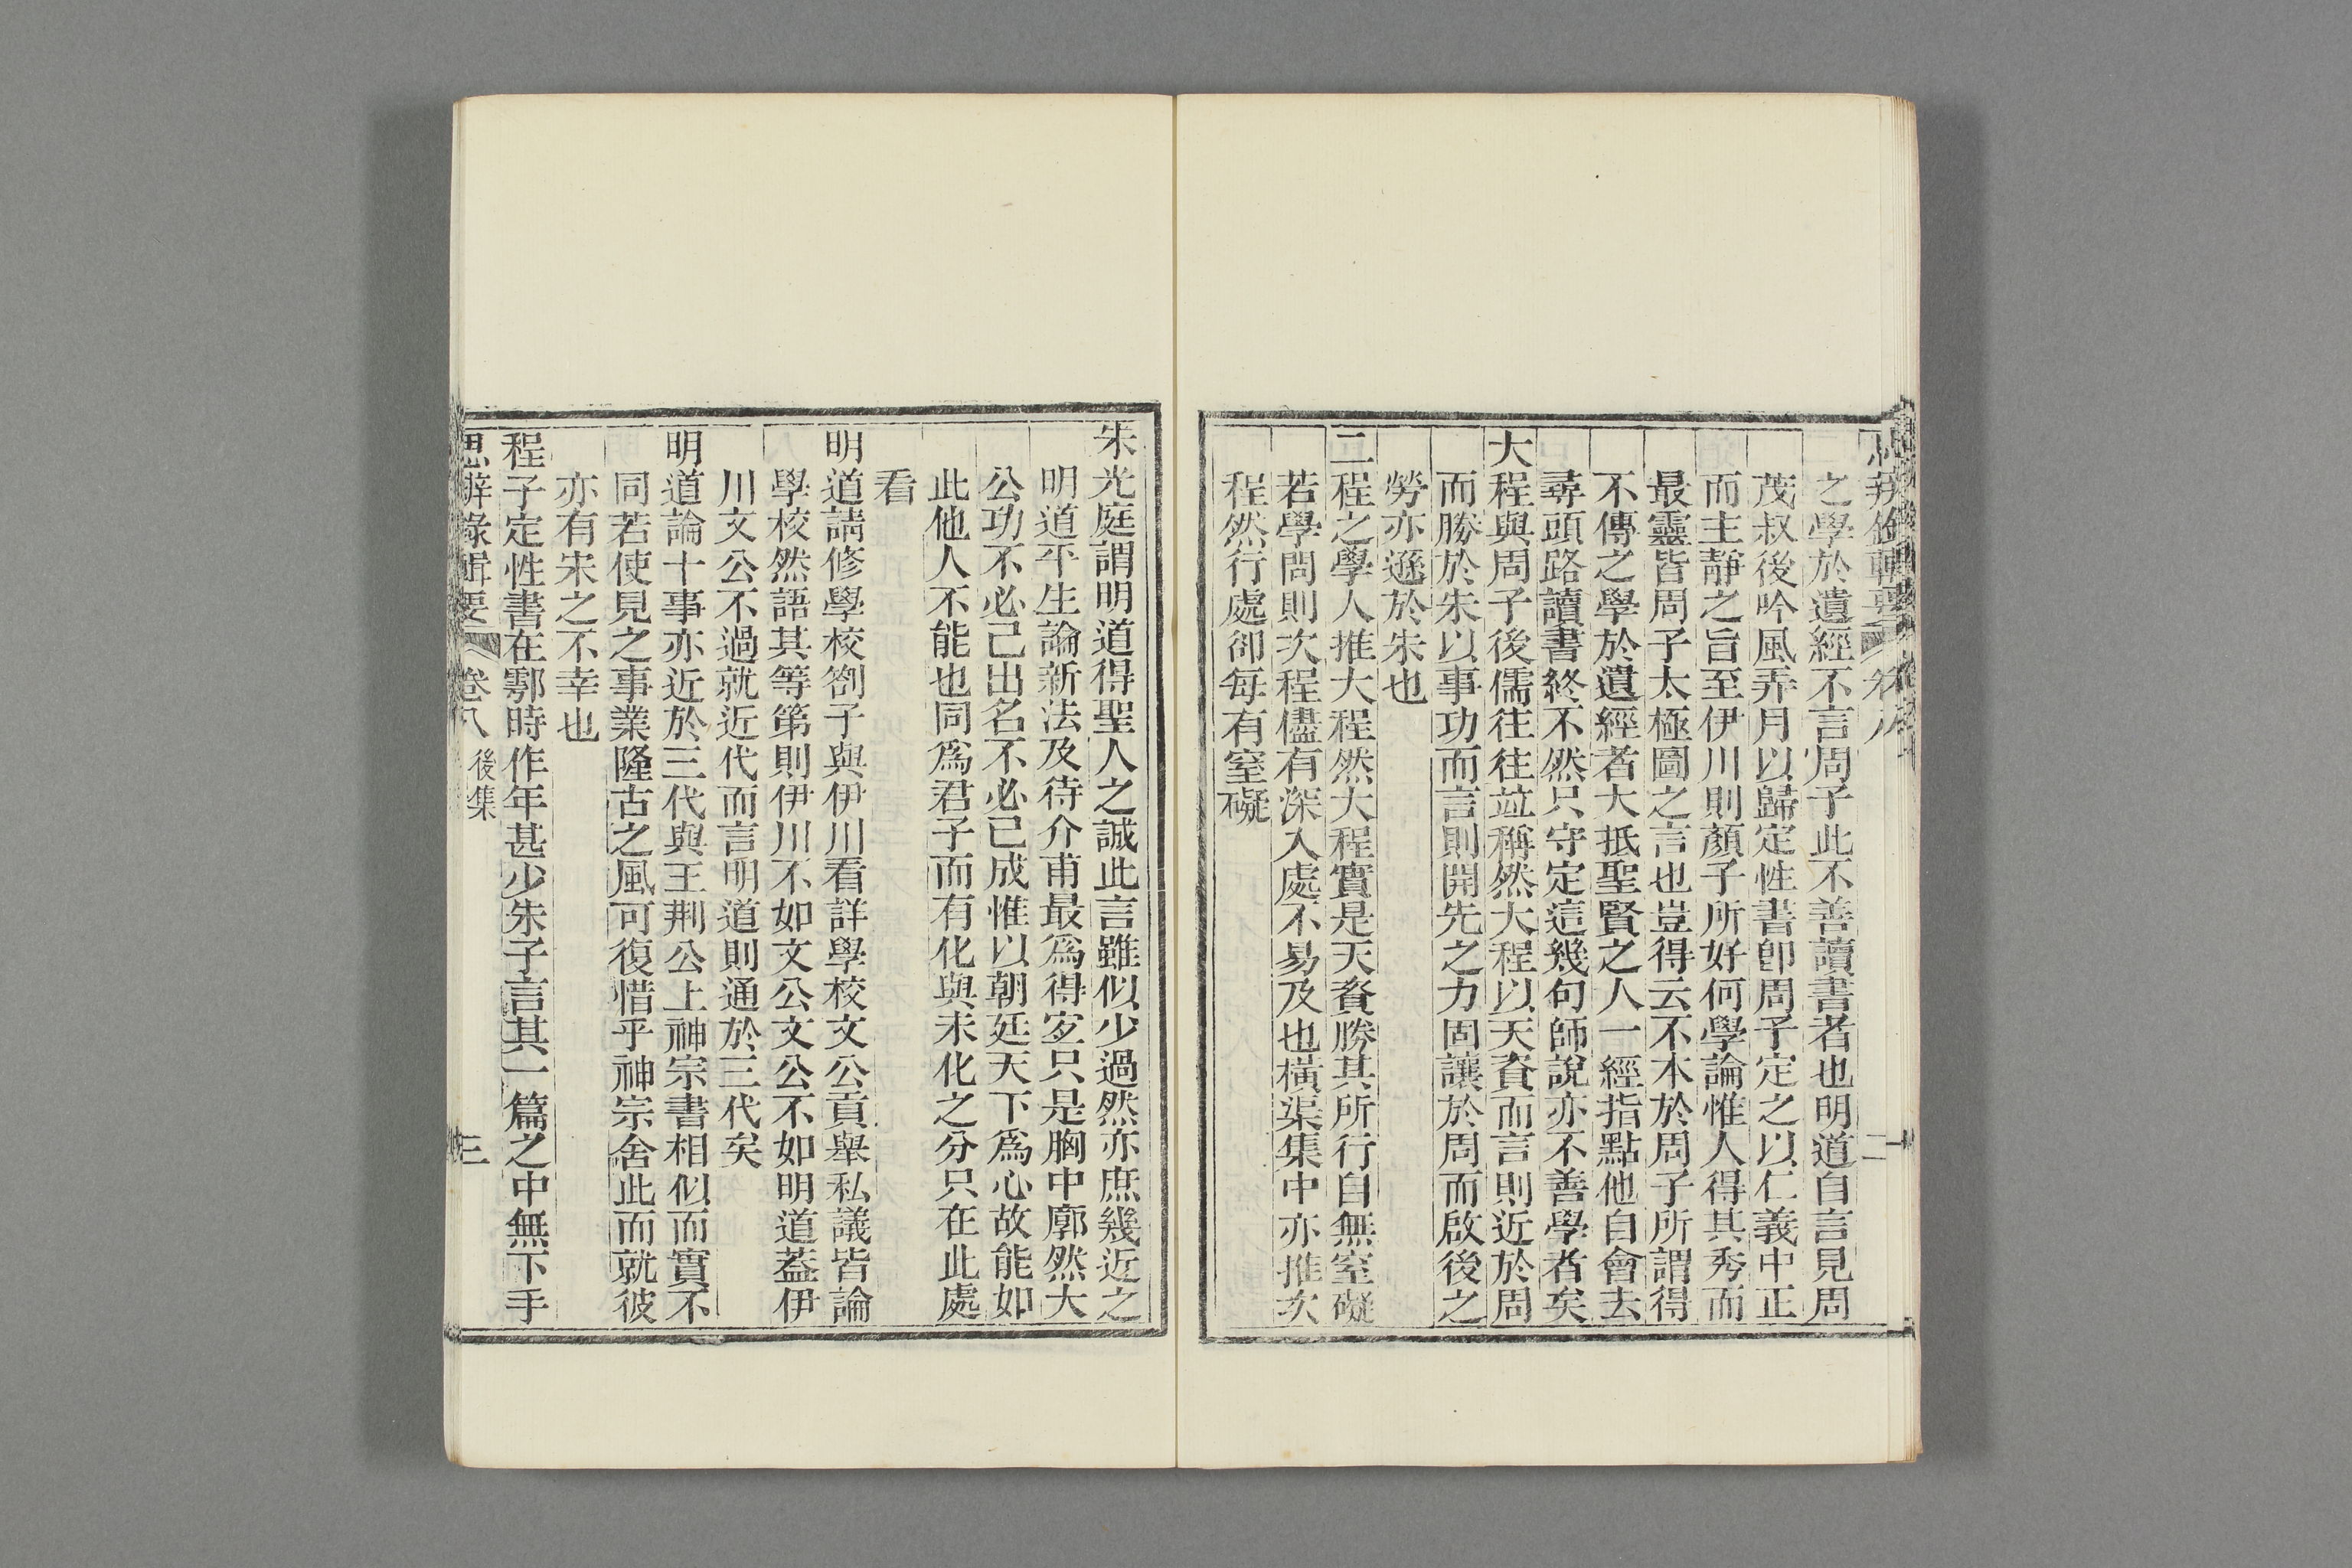 之學於遺經不言周子此不善讀書者也明道自言見周
茂叔後吟風弄月以歸定性書卽周子定之以仁義中正
而主靜之旨至伊川則顏子所好何學論惟人得其秀而
最靈皆周子太極圖之言也豈得云不本於周子所謂得
不傳之學於遺經者大抵聖賢之人一經指點他自會去
尋頭路讀書終不然只守定這幾句師說亦不善學者矣
大程與周子後儒往往竝稱然大程以天資而言則近於周
而勝於朱以事功而言則開先之力固讓於周而啟後之
勞亦遜於朱也
二程之學人推大程然大程實是天資勝其所行自無窒礙
若學問則次程儘有深入處不易及也橫渠集中亦推次
程然行處卻每有窒礙
朱光庭謂明道得聖人之誠此言雖似少過然亦庶幾近之
明道平生論新法及待介甫最爲得宏只是胸中廓然大
公功不必己出名不必己成惟以朝廷天下爲心故能如
此他人不能也同爲君子而有化與未化之分只在此處
看
明道請修學校劄子與伊川看詳學校文公貢舉私議皆論
學校然語其等第則伊川不如文公文公不如明道蓋伊
川文公不過就近代而言明道則通於三代矣
明道論十事亦近於三代與王荆公上神宗書相似而實不
同若使見之事業隆古之風可復惜乎神宗舍此而就彼
亦有宋之不幸也
程子定性書在鄠時作年甚少朱子言其一篇之中無下手
思辨錄輯要 卷八 後集 三